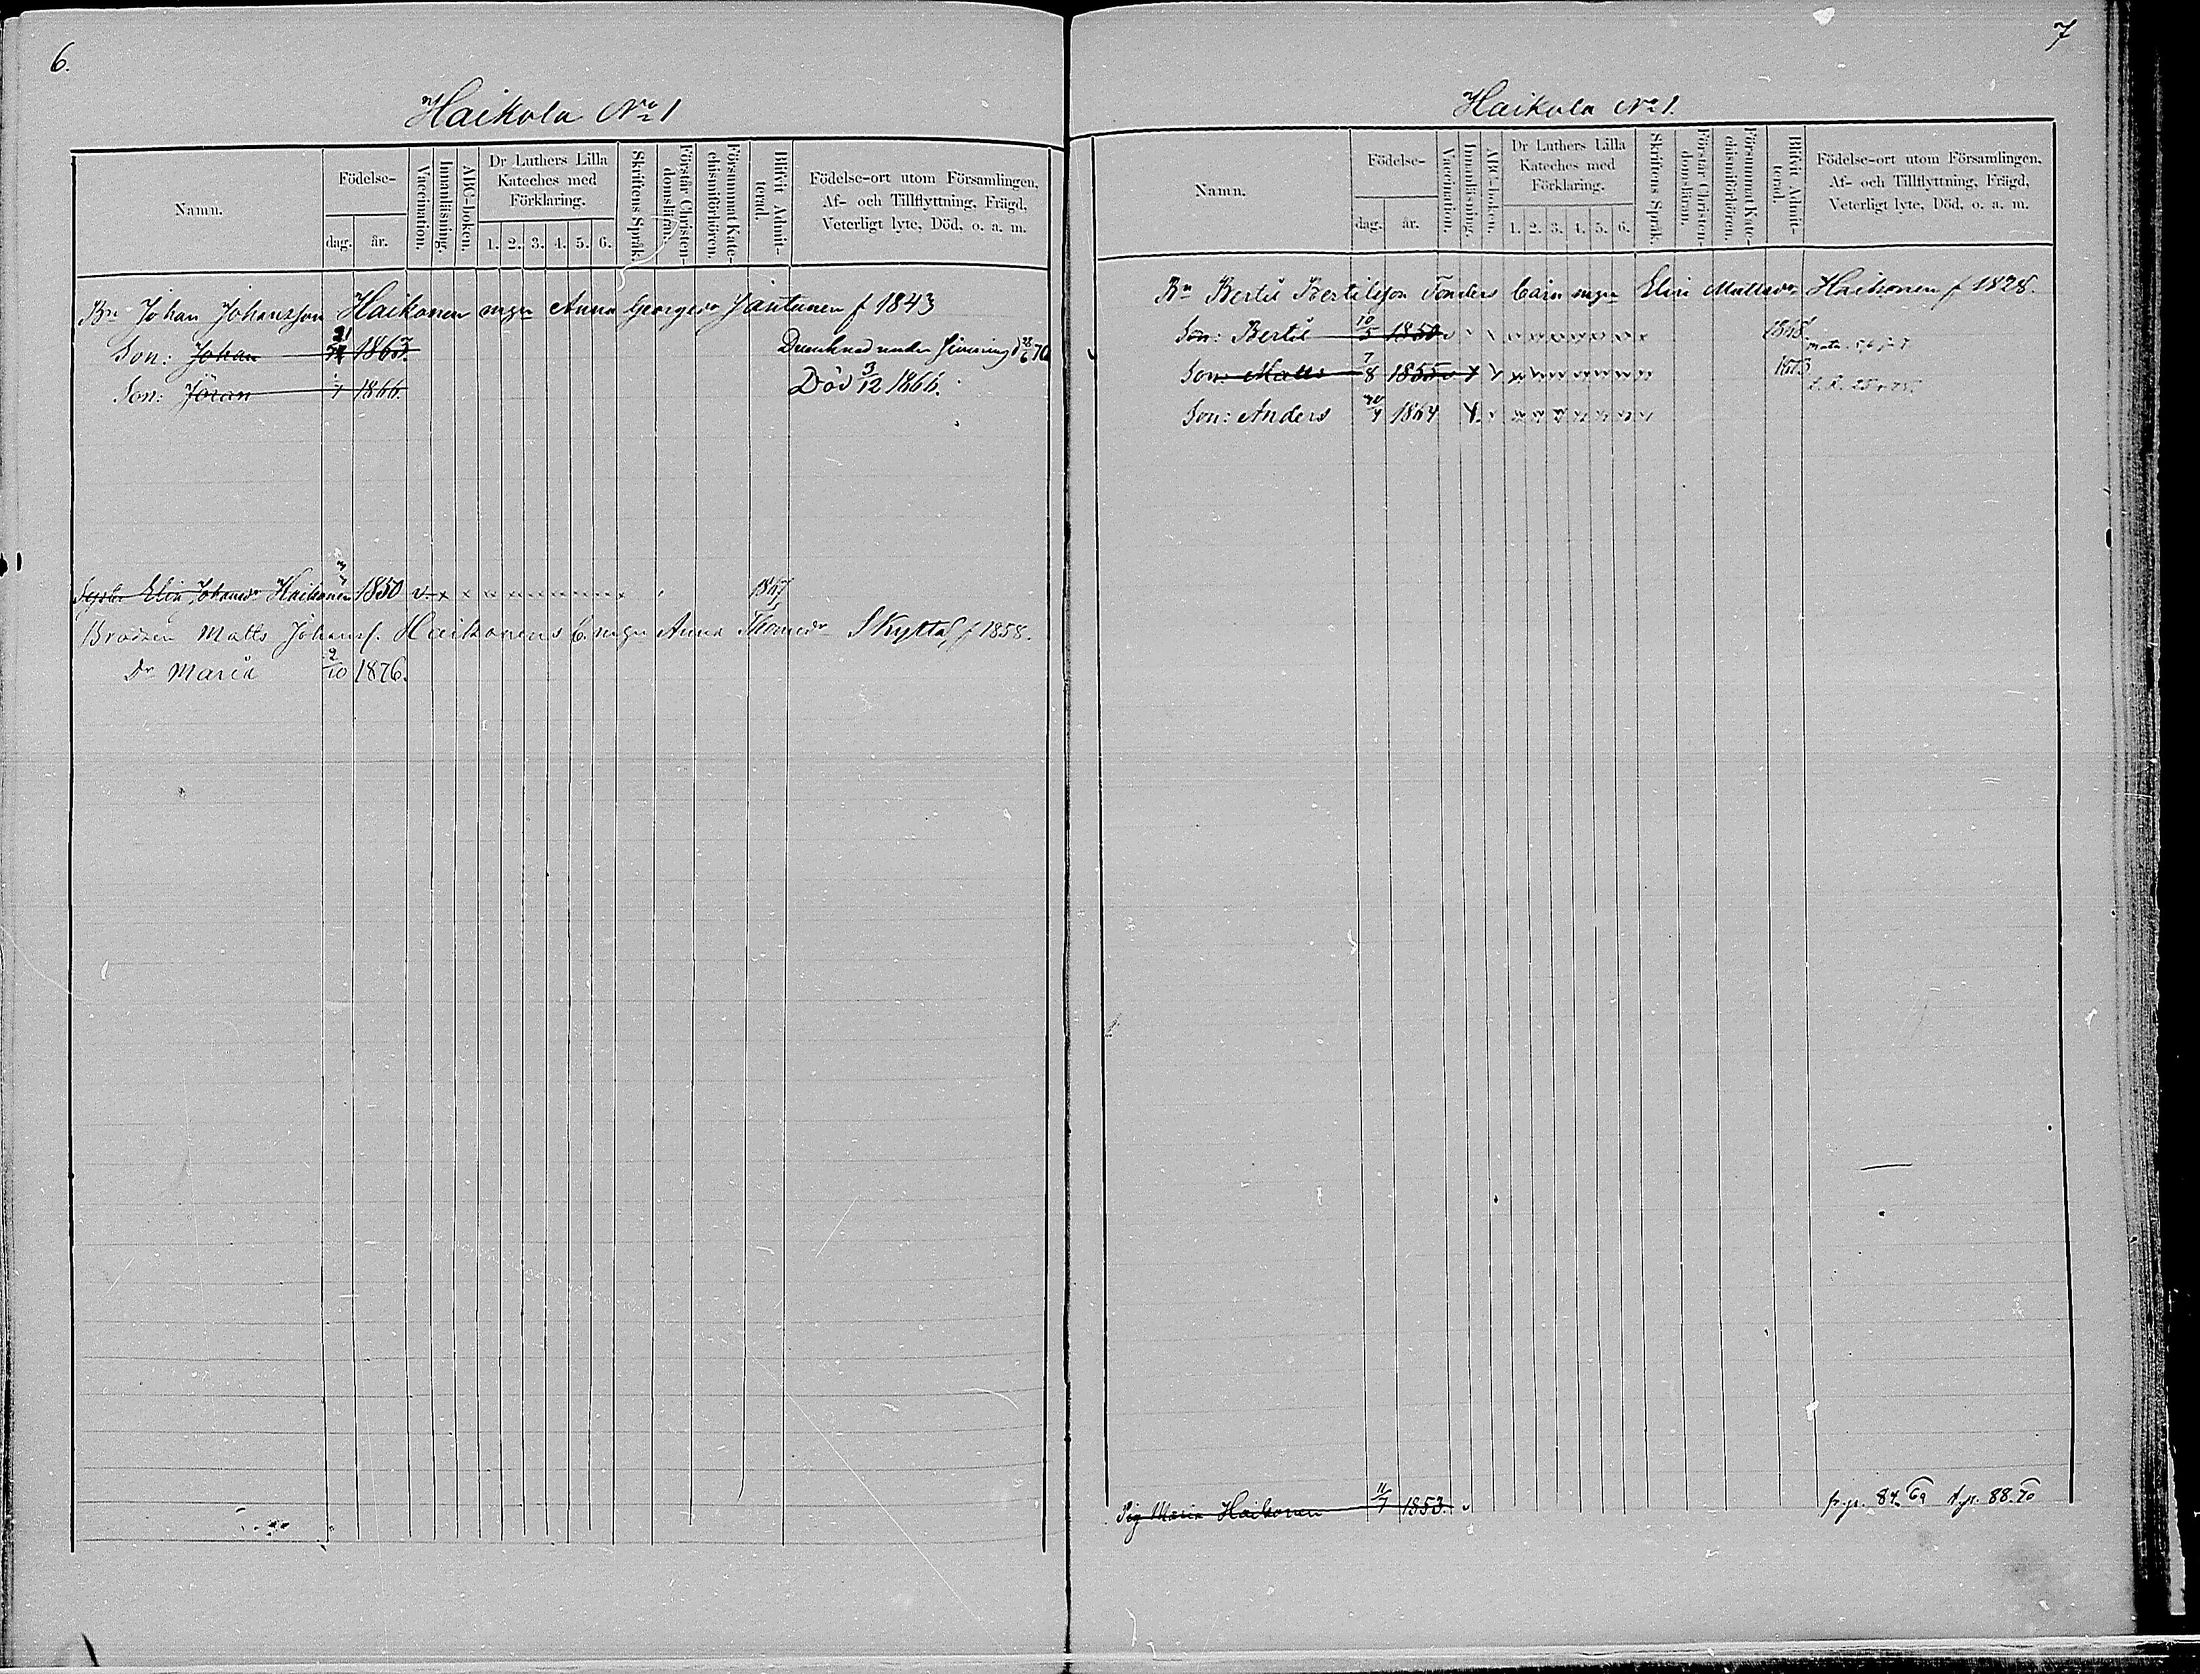 6.
Haikola No 1
Namn.
Födelse-
dag.
år.
Vaccination.
Innanläsning.
ABC-boken.
Dr Luthers Lilla
Kateches med
Förklaring.
1. 2. 3. 4. 5. 6.
Skriftens Språk.
Förstår Christen-
domsläran.
Försummat Kate-
chismiförhören.
Blifvit Admit-
terad.
Födelse-ort utom Församlingen,
Af- och Tillflyttning, Frägd,
Veterligt lyte, Död, o. a. m.
Bn Johan Johansson Haikonen m gn Anna Georgsdr Jäntunen f 1843
Son: Johan 21 1863. Drunknad under simning d 28/6 76
Son: Jöran 1866. Död 3/12 1866.
Syster Elin Johansdr Haikonen 3/7 1850 v x 1867
Brodren Matts Johanss. Haikonens b. m gn Anna Thomsdr Skyttä f 1858.
Dr Maria 2/10 1876.
7
Haikola No 1.
Namn.
Födelse-
dag.
år.
Vaccination.
Innanläsning.
ABC-boken.
Dr Luthers Lilla
Kateches med
Förklaring.
1. 2. 3. 4. 5. 6.
Skriftens Språk.
Förstår Christen-
domsläran.
Försummat Kate-
chismiförhören.
Blifvit Admit-
terad.
Födelse-ort utom Församlingen,
Af- och Tillflyttning, Frägd,
Veterligt lyte, Död, o. a. m.
Bn Bertil Bertilsson Tonders barn m gn Elin Mattsdr Haikonen f 1828.
Son: Bertil 10/5 1850 1868
Son: Matts 7/8 1855 v 1873
Son: Anders 1864
Pig Maria Haikonen 11/7 1853. v fr. p. 84. 69 t. p. 88. 70